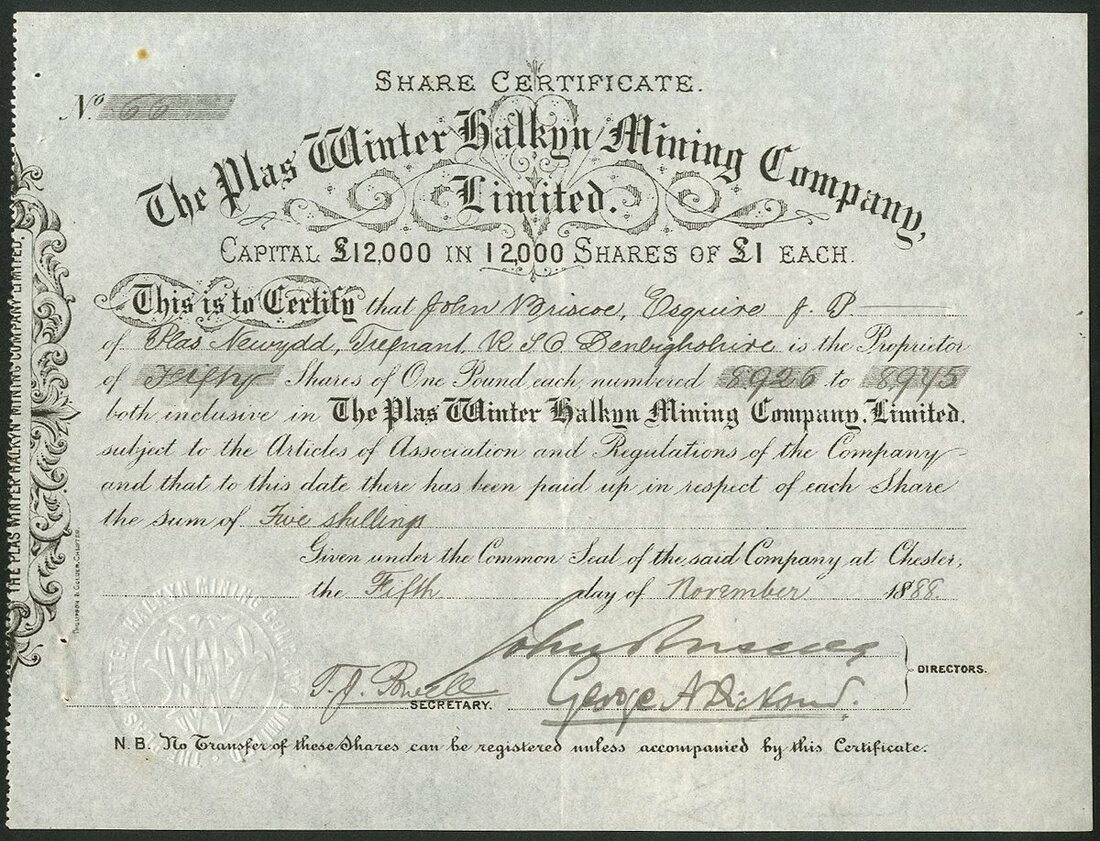 SHARE CERTIFICATE.
No 66
The Plas Winter Halkyn Mining Company,
Limited.
CAPITAL £12,000 IN 12,000 SHARES OF £1 EACH.
This is to Certify that John Briscoe, Esquire J. P
of Plas Newydd, Trefnant, R S O Denbighshire is the Proprietor
of Fifty Shares of One Pound each, numbered 8926 to 8945
both inclusive in The Plas Winter Halkyn Mining Company, Limited.
subject to the Articles of Association and Regulations of the Company
and that to this date there has been paid up in respect of each Share
the sum of Five shillings
Given under the Common Seal of the said Company at Chester,
the Fifth day of November 1888.
John Briscoe
DIRECTORS.
T. J. Powell
SECRETARY.
George A Dickson.
N.B. No Transfer of these Shares can be registered unless accompanied by this Certificate.
THE PLAS WINTER HALKYN MINING COMPANY LIMITED.
THOMPSON & GOLDER, CHESTER.